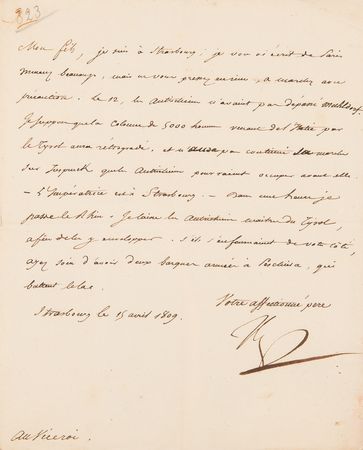 823
Mon fils, je suis à Strasbourg; je vous ai écrit de Paris
menacez beaucoup, mais ne vous pressez en rien, et marchez avec
précaution. Le 12, les Autrichiens n'avaient pas dépassé Muhldorf.
Je suppose que la colonne de 5000 hommes venant de l'Italie par
le Tyrol aura rétrogradé, et n'aura pas continué sa marche
sur Inspruck que les Autrichiens pourraient occuper avant elle.
- L'Impératrice est à Strasbourg. - Dans une heure je
passe le Rhin. Je laisse les Autrichiens maîtres du Tyrol,
afin de les y envelopper. S'ils s'enfournaient de votre côté,
ayez soin d'avoir deux barques armées à Peschiera, qui
battent le lac.
Votre affectionné père
Strasbourg le 15 avril 1809.
N
Au Viceroi.